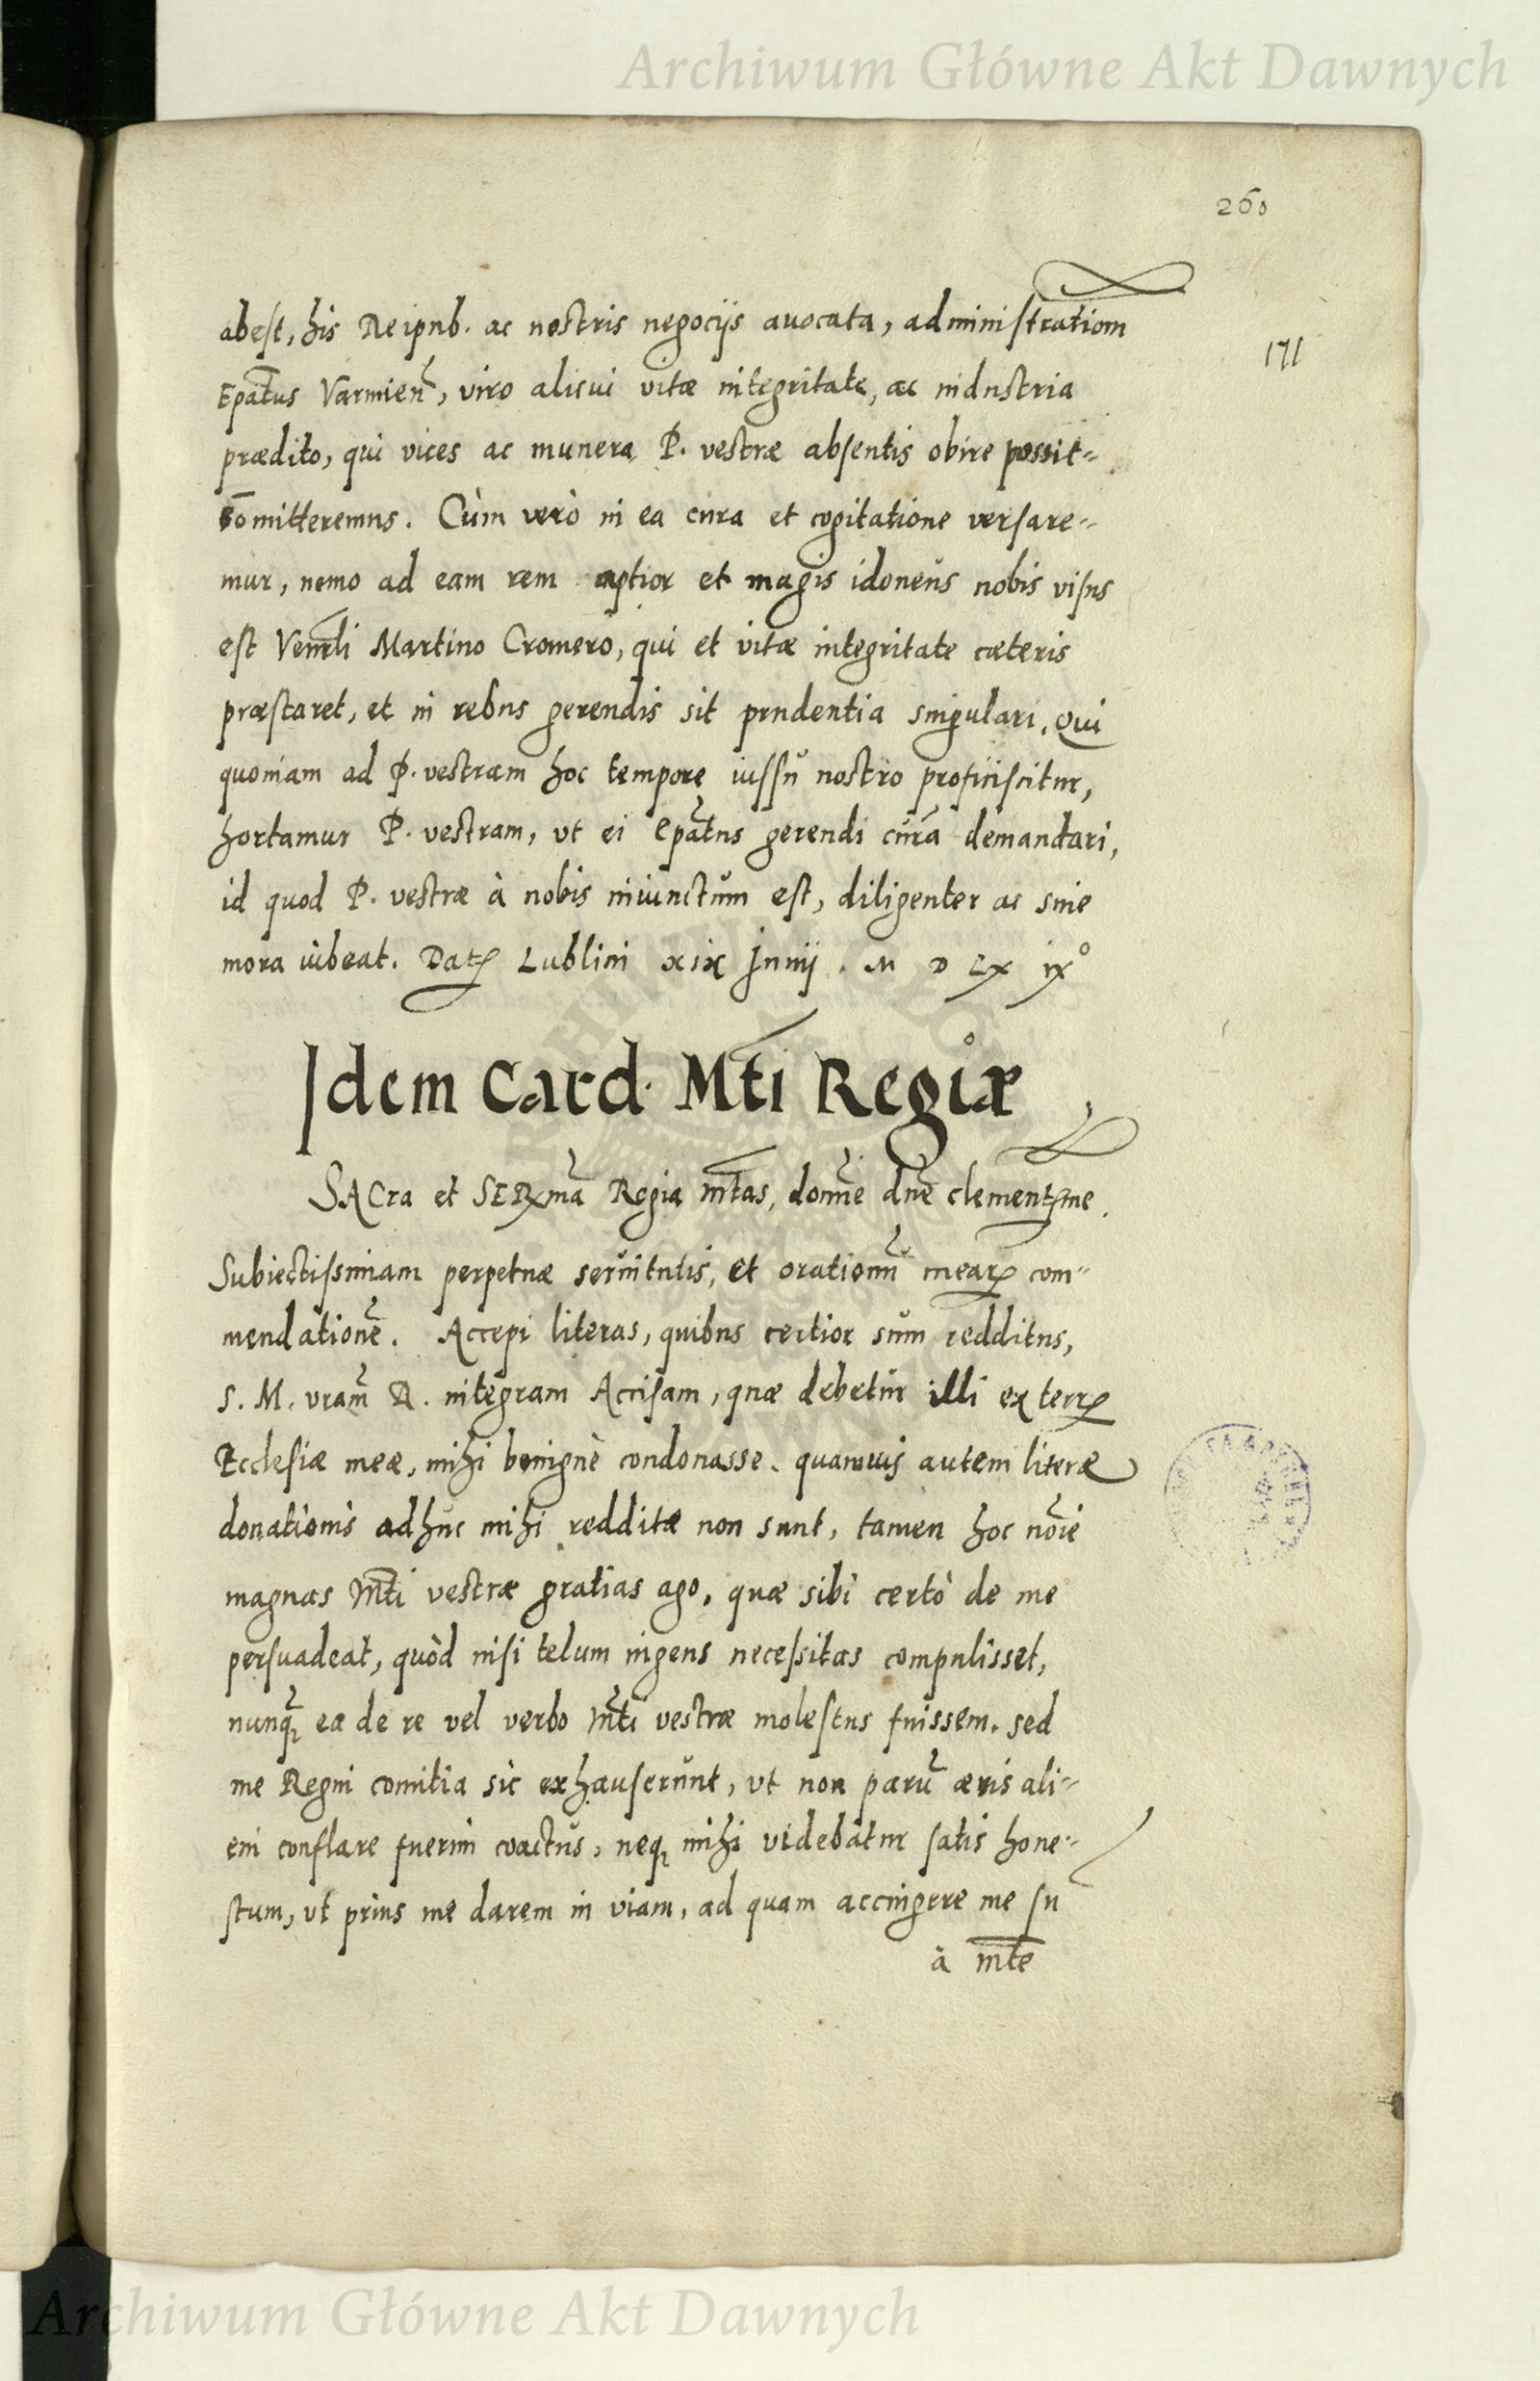 Archiwum Główne Akt Dawnych
260
171
abest, his Reipub. ac nostris negocijs auocata, administrationi
Epatus Varmien, viro alicui vitæ integritate, ac industria
prædito, qui vices ac munera P. vestræ absentis obire possit
comitteremus. Cùm verò in ea cura et cogitatione versare=
mur, nemo ad eam rem aptior et magis idoneus nobis visus
est Venrli Martino Cromero, qui et vitæ integritate cæteris
præstaret, et in rebus gerendis sit prudentia singulari. Qui
quoniam ad P. vestram hoc tempore iussu nostro proficiscitur,
hortamur P. vestram, vt ei Epatus gerendi curã demandari,
id quod P. vestræ à nobis iniunctum est, diligenter ac sine
mora iubeat. Dat Lublini xix Junij . M D LX ix°
Idem Card. Mti Regiæ
SACra et SERma Regia Mtas, domne dne clementsme.
Subiectissimam perpetuæ seruitutis, et orationũ mear com=
mendationẽ. Accepi literas, quibus certior sum redditus,
S. M. vram R. integram Accisam, quæ debetur illi ex terr
Ecclesiæ meæ, mihi benignè condonasse. quamuis autem literæ
donationis adhuc mihi redditæ non sunt, tamen hoc noie
magnas Mti vestræ gratias ago, quæ sibi certò de me
persuadeat, quòd nisi telum ingens necessitas compulisset,
nunq ea de re vel verbo Mti vestræ molestus fuissem. sed
me Regni comitia sic exhauserunt, vt non parũ æris ali=
eni conflare fuerim coactus, neq mihi videbatur satis hone=
stum, vt prius me darem in viam, ad quam accingere me su
à Mte
Archiwum Główne Akt Dawnych